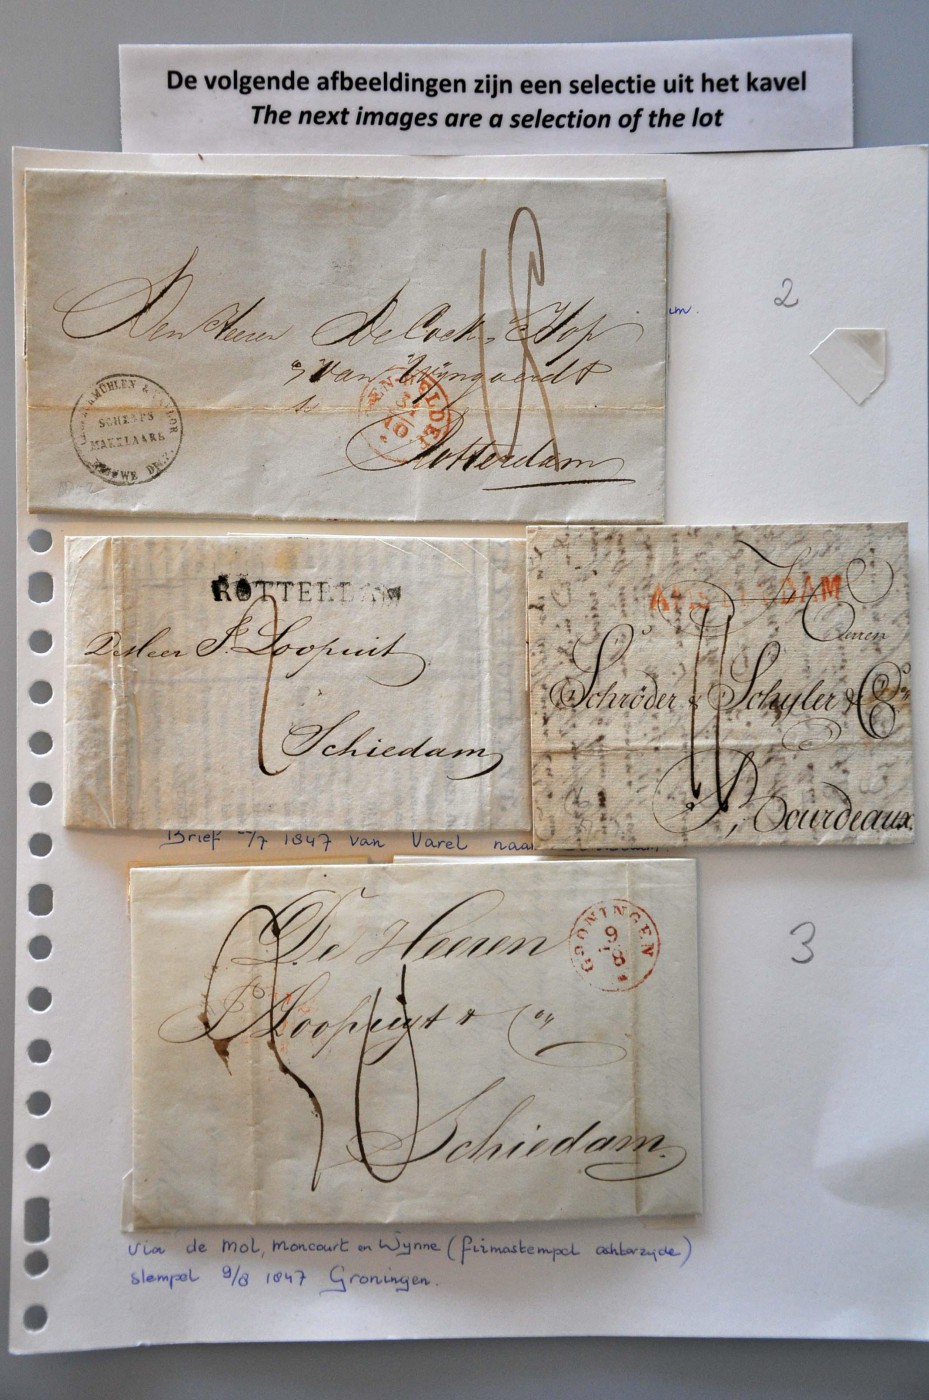 De volgende afbeeldingen zijn een selectie uit het kavel
The next images are a selection of the lot
2
Den Heeren De Cock, Hop
van Wijngaerdt
Rotterdam
MÜHLEN &
SCHEEPS
MAKELAARS
ROTTERDAM
De Heer J. Loopuit
Schiedam
AMSTERDAM
Heeren
Schröder & Schyler & Co
Bourdeaux.
Brief /7 1847 van Varel naar
3
GRONINGEN
9/8
De Heeren
J. Loopuyt & Co
Schiedam.
via de Mol, Moncourt en Wynne (firmastempel achterzyde)
stempel 9/8 1847 Groningen.